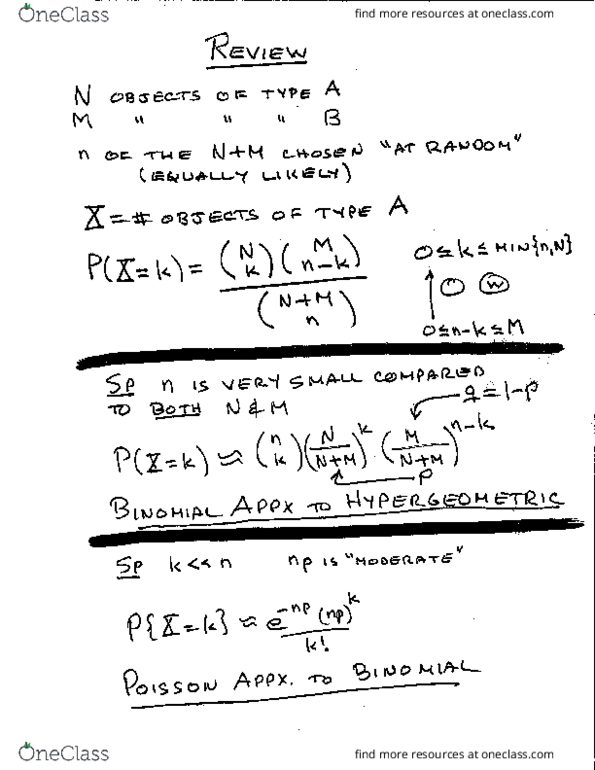 OneClass
find more resources at oneclass.com
REVIEW
N OBJECTS OF TYPE A
M " " " B
n OF THE N+M CHOSEN "AT RANDOM"
(EQUALLY LIKELY)
X = # OBJECTS OF TYPE A
P(X=k) = (N k)(M n-k) / (N+M n)
0≤k≤MIN{n,N}
W
0≤n-k≤M
SP n IS VERY SMALL COMPARED
TO BOTH N & M
q=1-p
P(X=k) ≈ (n k)(N/N+M)^k · (M/N+M)^n-k
p
BINOMIAL APPX TO HYPERGEOMETRIC
SP k<<n np IS "MODERATE"
P{X=k} ≈ e^-np (np)^k / k!
POISSON APPX. TO BINOMIAL
OneClass
find more resources at oneclass.com